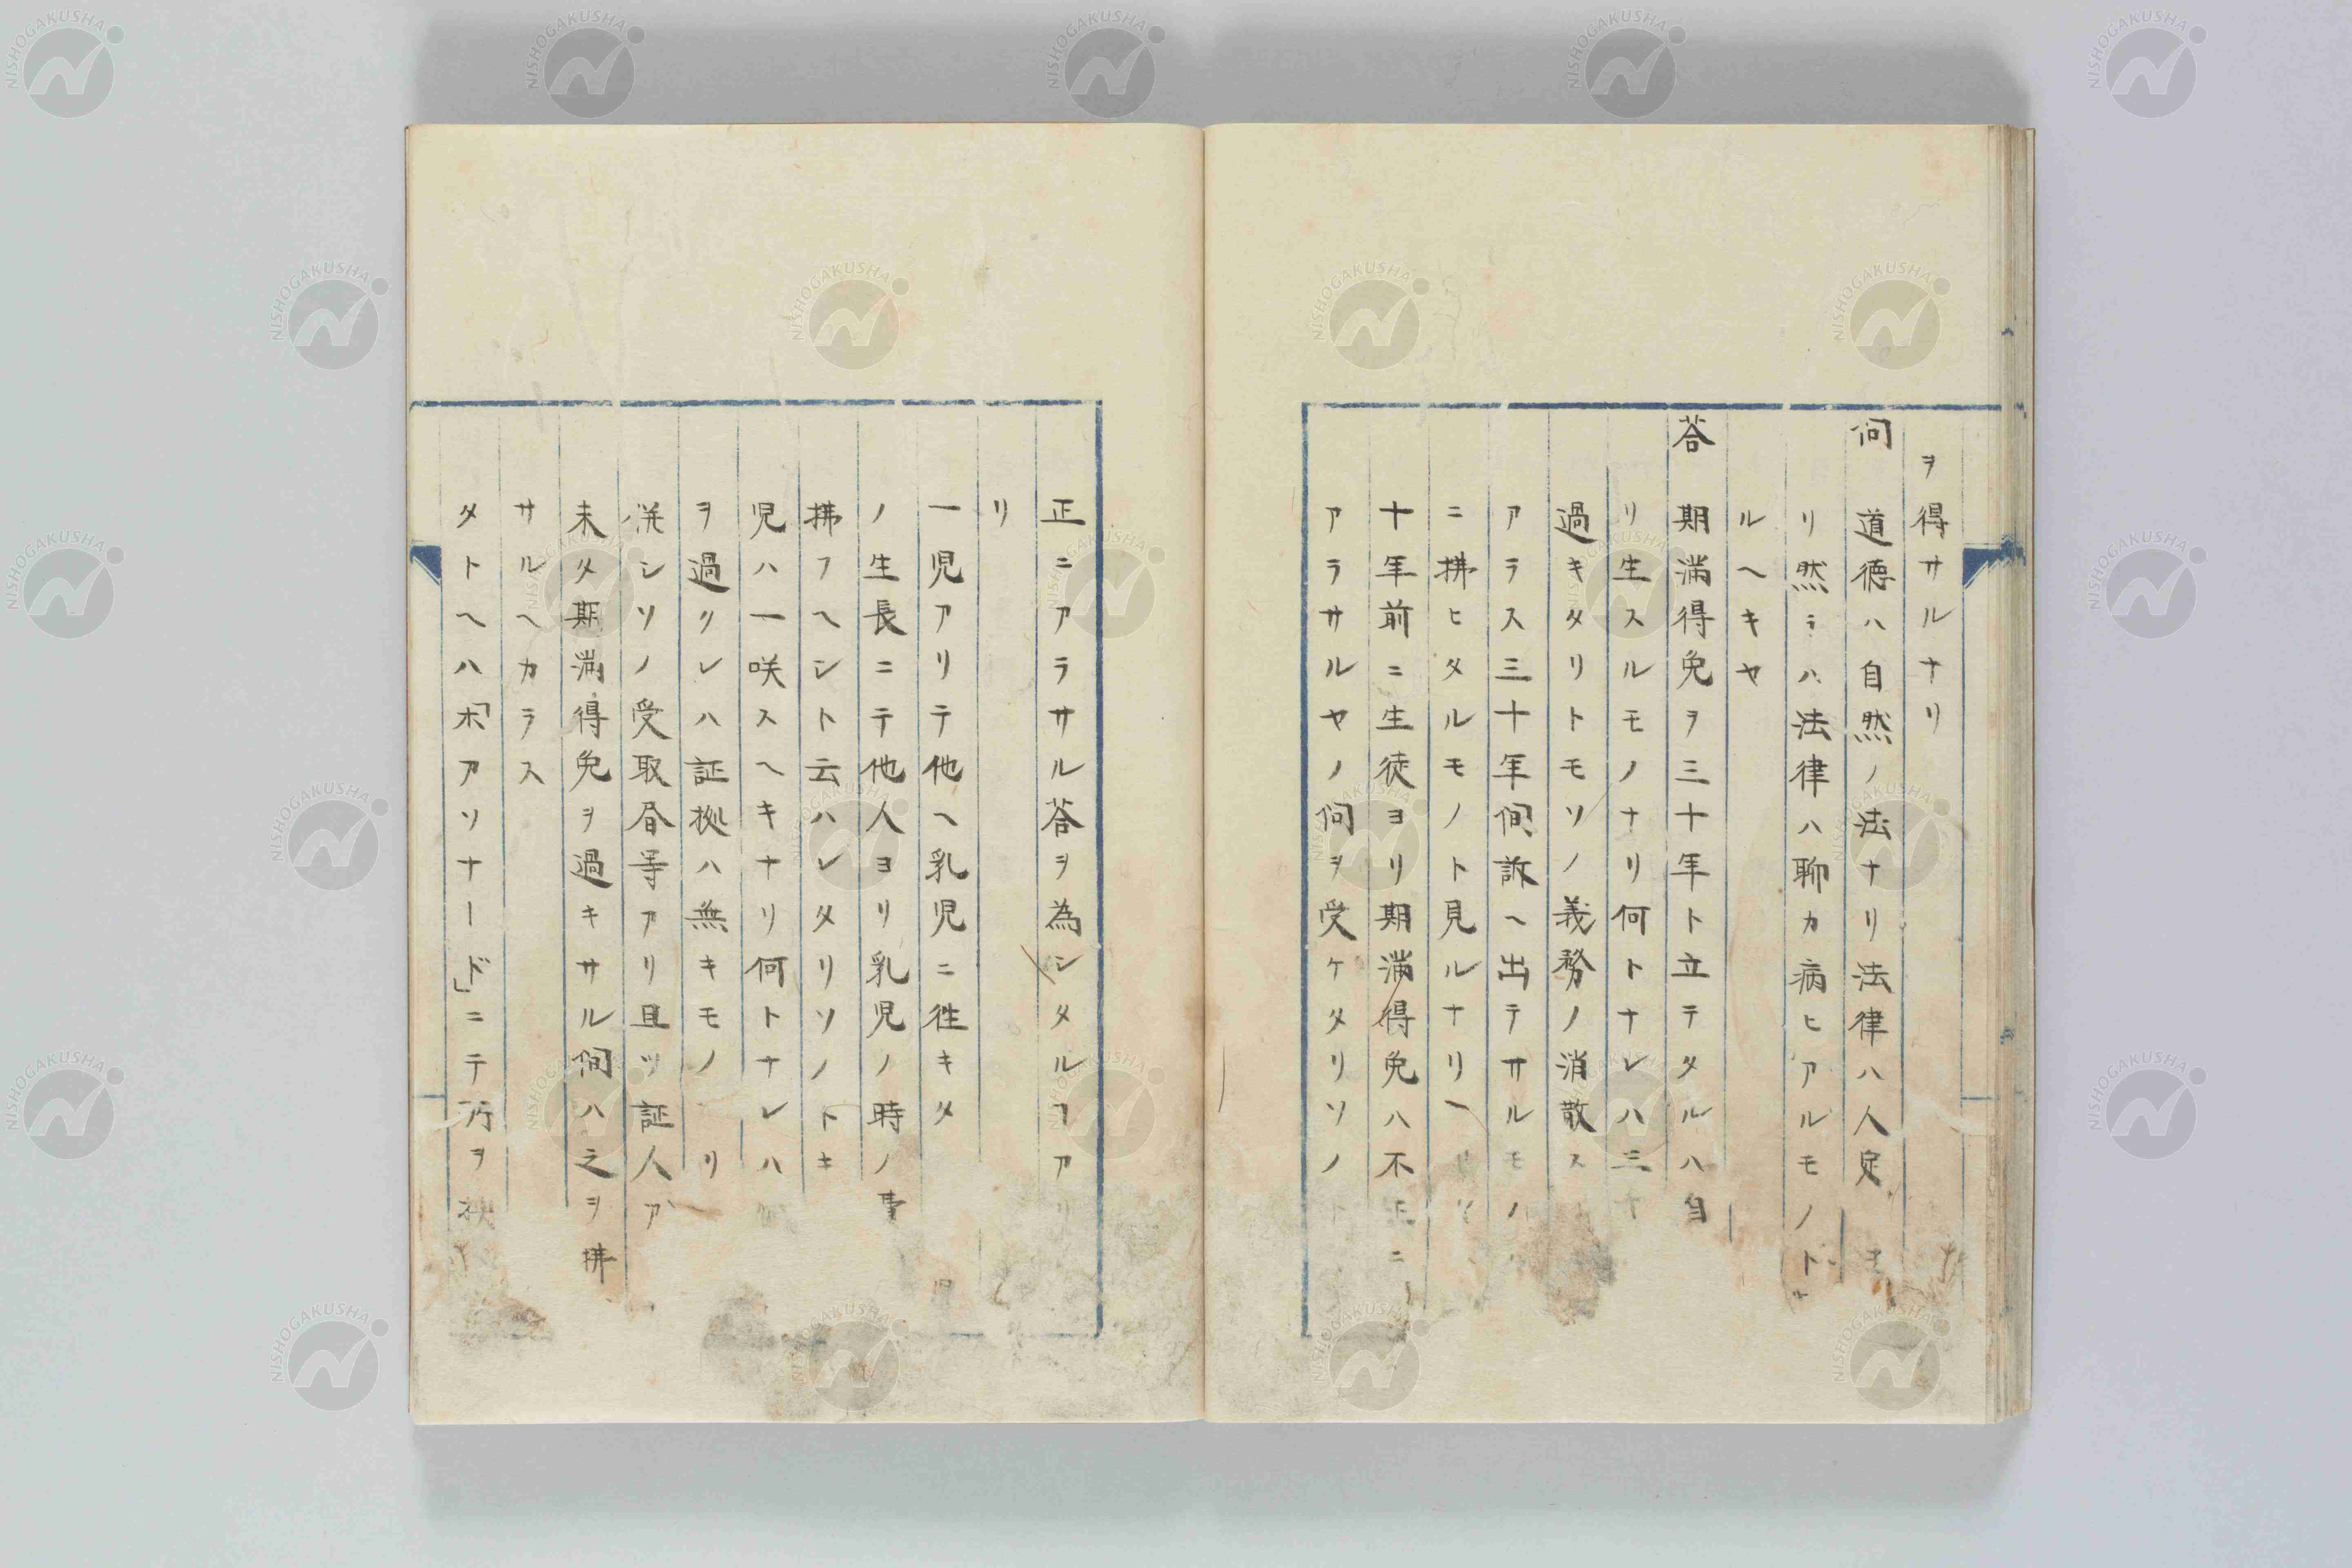 ヲ得サルナリ
問 道徳ハ自然ノ法ナリ法律ハ人定
リ然ラハ法律ハ聊カ病ヒアルモノト
ルヘキヤ
答 期満得免ヲ三十年ト立テタルハ自
リ生スルモノナリ何トナレハ三十
過キタリトモソノ義務ノ消散ス
アラス三十年間訴ヘ出テサルモノ
ニ拂ヒタルモノト見ルナリ
十年前ニ生徒ヨリ期満得免ハ不正ニ
アラサルヤノ問ヲ受ケタリソノ
正ニアラサル答ヲ為シタルヿアリ
リ
一児アリテ他ヘ乳児ニ徃キタ
ノ生長ニテ他人ヨリ乳児ノ時ノ事
拂フヘシト云ハレタリソノトキ
児ハ一咲スヘキナリ何トナレハ
ヲ過クレハ証拠ハ無キモノ リ
併シソノ受取昏等アリ且ツ証人ア
未タ期満得免ヲ過キサル間ハ之ヲ拂
サルヘカラス
タトヘハ「ボアソナード」ニテ汚ヲ
NISHOGAKUSHA